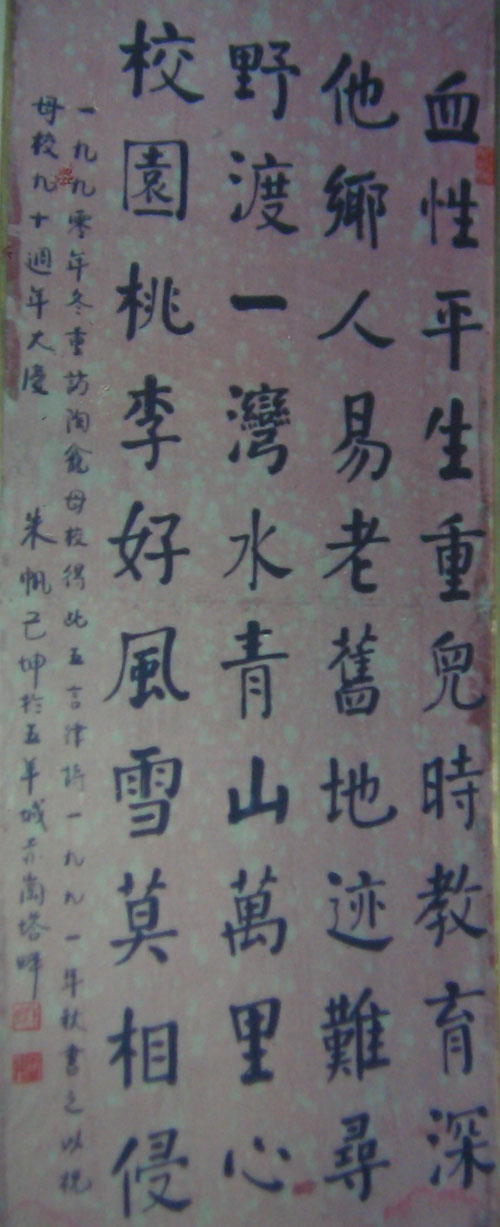 血性平生重兒時教育深
他鄉人易老舊地迹難尋
野渡一灣水青山萬里心
校園桃李好風雪莫相侵
一九九零年冬重訪陶龕母校得此五言律詩一九九一年秋書之以祝
母校九十週年大慶
朱帆己坤於五羊城赤崗塔畔